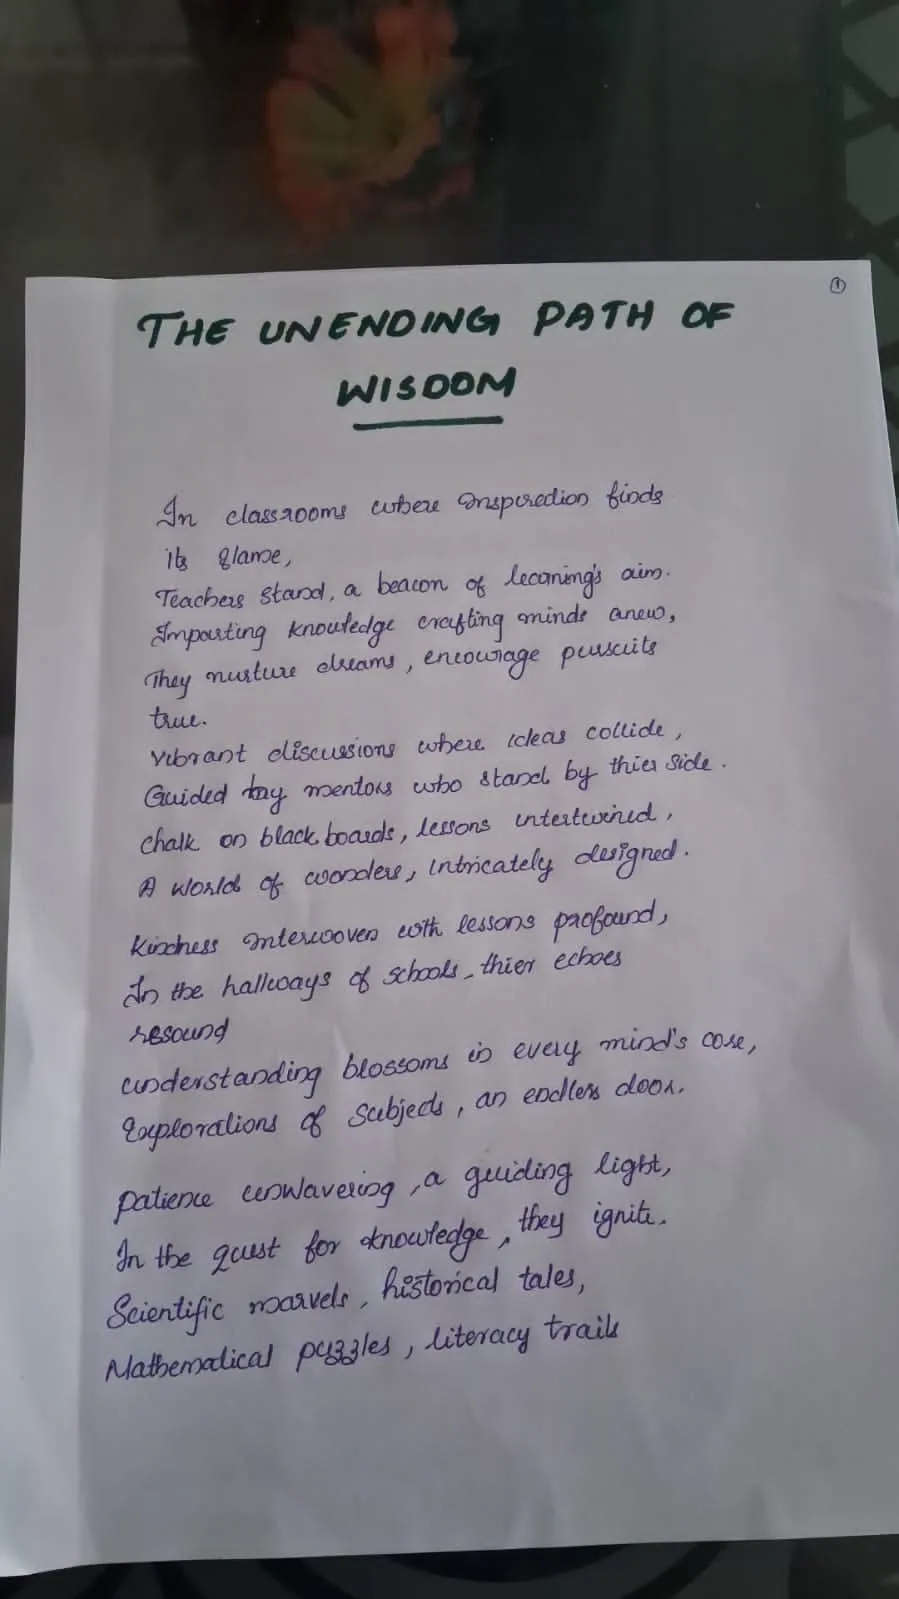 ①
THE UNENDING PATH OF
WISDOM
In classrooms where inspiration finds
its flame,
Teachers stand, a beacon of learning's aim.
Imparting knowledge crafting minds anew,
They nurture dreams, encourage pursuits
true.
Vibrant discussions where ideas collide,
Guided by mentors who stand by thier side.
Chalk on black boards, lessons intertwined,
A world of wonders, intricately designed.
Kindness interwoven with lessons profound,
In the hallways of schools, thier echoes
resound
understanding blossoms in every mind's core,
Explorations of subjects, an endless door.
Patience unwavering, a guiding light,
In the quest for knowledge, they ignite.
Scientific marvels, historical tales,
Mathematical puzzles, literacy trails